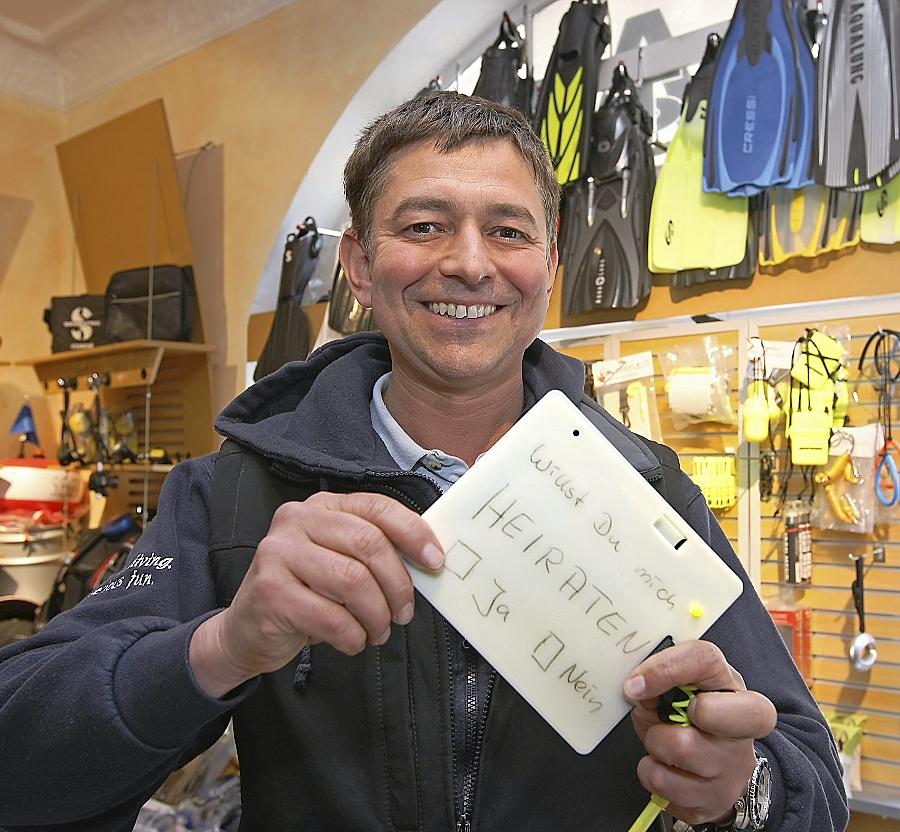 Willst Du mich
HEIRATEN
Ja
Nein
CRESSI
AQUALUNG
S
diving.
fun.